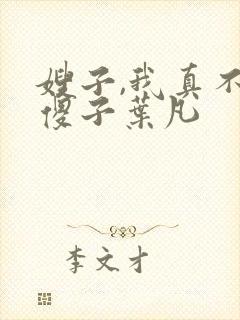 嫂子,我真不
傻子葉凡
李文才